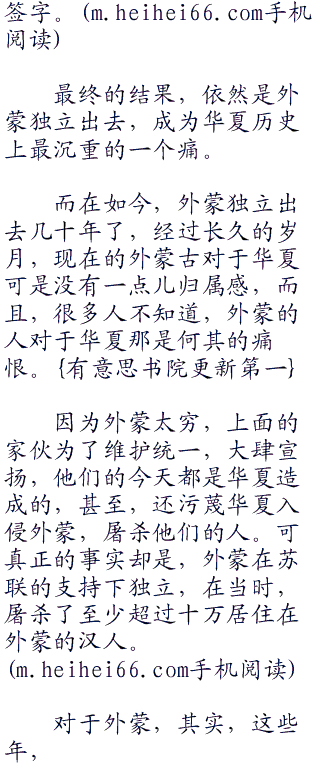 签字。 (m.heihei66.com手机
阅读)
最终的结果，依然是外
蒙独立出去，成为华夏历史
上最沉重的一个痛。
而在如今，外蒙独立出
去几十年了，经过长久的岁
月，现在的外蒙古对于华夏
可是没有一点儿归属感，而
且，很多人不知道，外蒙的
人对于华夏那是何其的痛
恨。 {有意思书院更新第一}
因为外蒙太穷，上面的
家伙为了维护统一，大肆宣
扬，他们的今天都是华夏造
成的，甚至，还污蔑华夏入
侵外蒙，屠杀他们的人。可
真正的事实却是，外蒙在苏
联的支持下独立，在当时，
屠杀了至少超过十万居住在
外蒙的汉人。
(m.heihei66.com手机阅读)
对于外蒙，其实，这些
年，